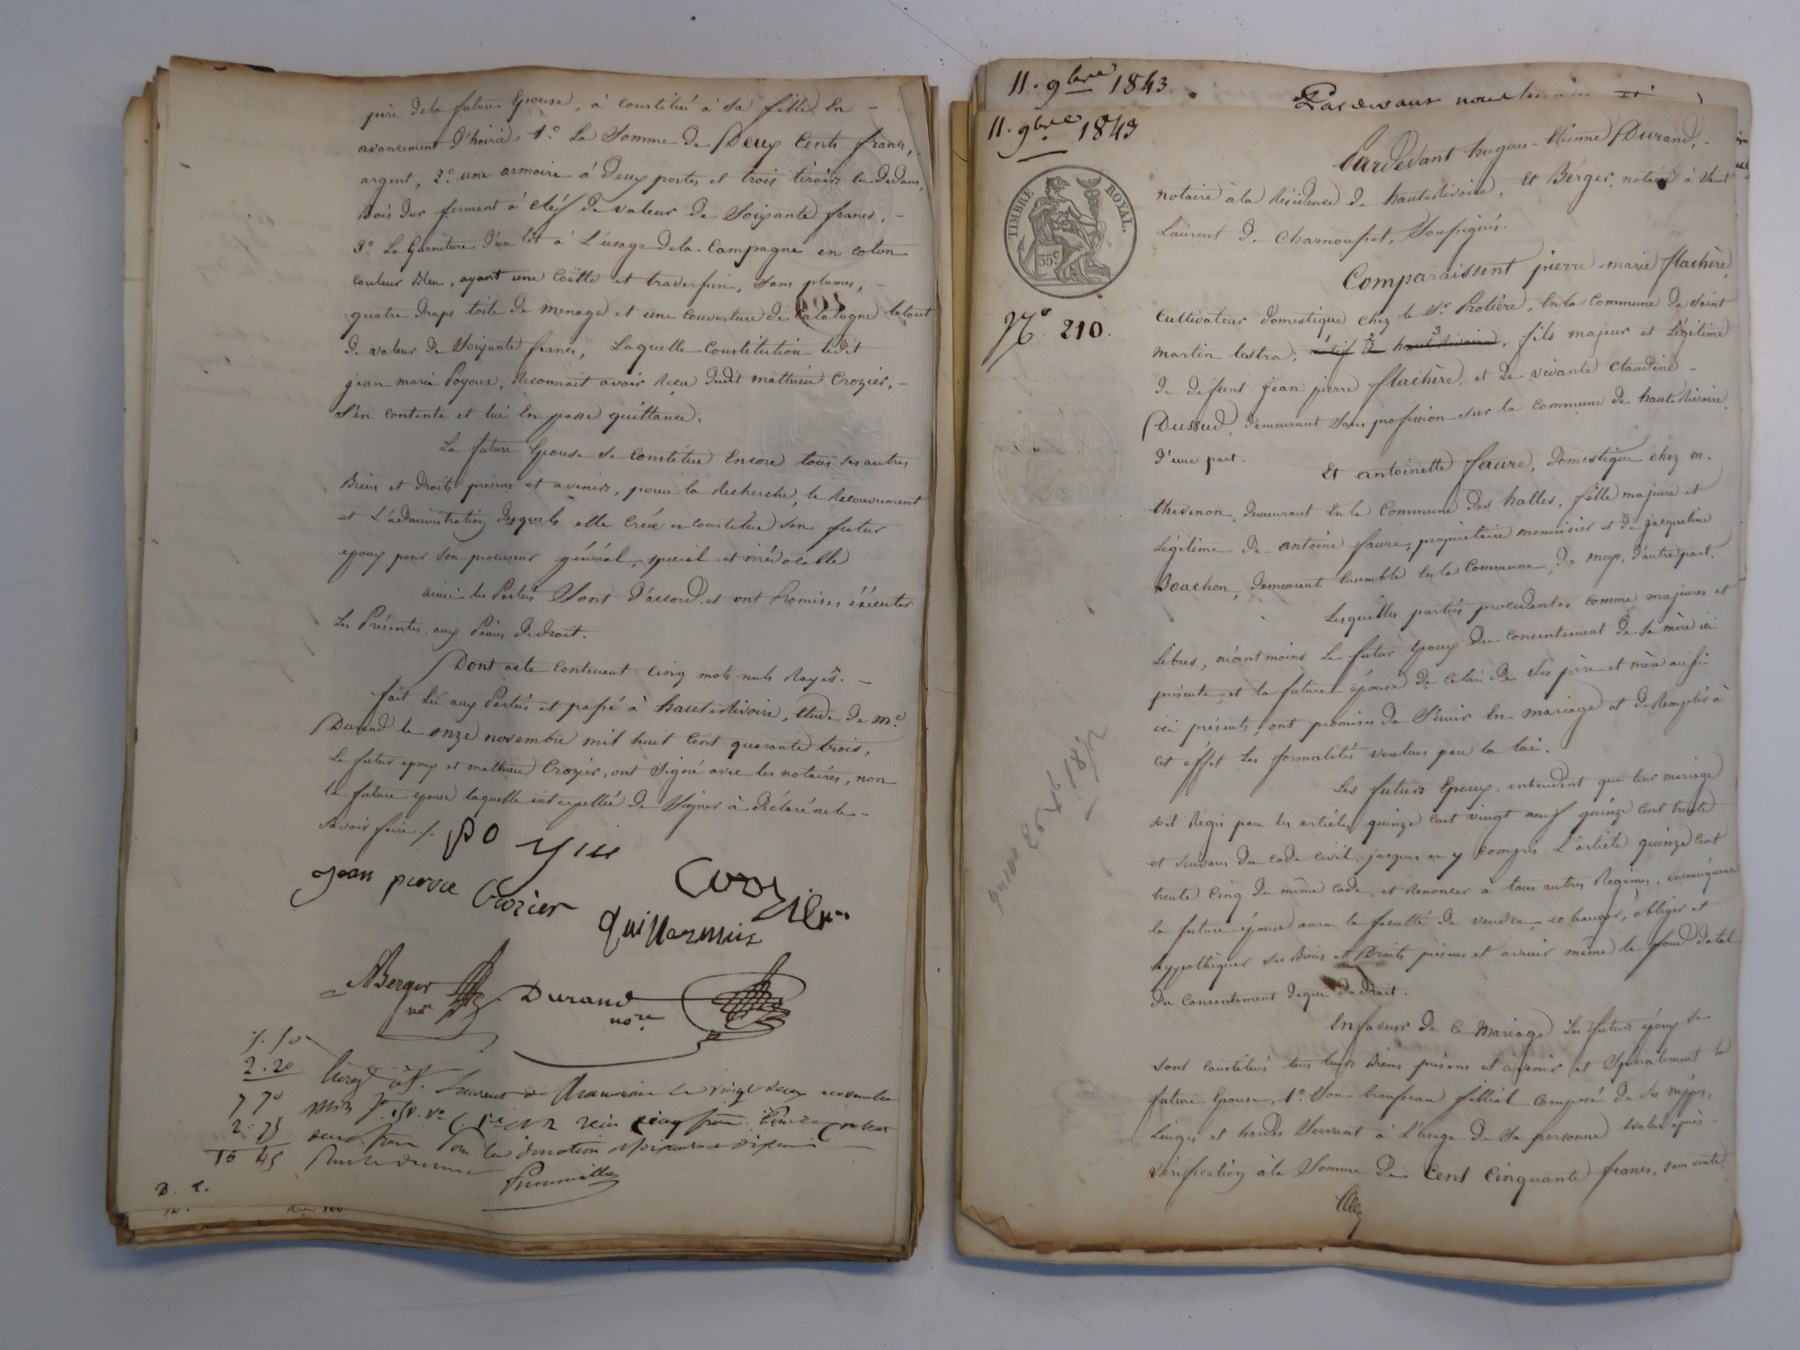 père de la future Epouse, a constitué à sa fille En
avancement d'hoirie. 1.° La Somme de Deux Cents francs,
argent, 2.° une armoire à deux portes et trois tiroirs en dedans,
bois dur fermant à cléf de valeur de Soixante francs.
3.° La Garniture d'un lit à L'usage de la Campagne en coton
couleur Bleu, ayant une Coëtte et traversin, Sans plumes,
quatre draps toile de menage et une couverture de Catalogne le tout
de valeur de Soixante francs, Laquelle Constitution ledit
jean marie Poyoux, Reconnait avoir Reçu dudit mathieu Crozier,
S'en contente et lui En passe quittance.
La future Epouse Se Constitue Encore tous ses autres
Biens et droits présens et avenirs, pour la Recherche, le Recouvrement
et L'administration desquels elle Crée et constitue Son futur
epoux pour Son procureur général, special et irrévocable
ainsi les Parties Sont d'accord et ont Promises éxécuter
Les Présentes aux Peines de droit.
Dont acte contenant Cinq mots nuls Rayés.
fait Lû aux Parties et passé à haute Rivoire, Etude de M.e
Durand le onze novembre mil huit Cent quarante trois,
Le futur epoux et mathieu Crozier, ont Signé avec les notaires, non
la future epouse laquelle interpellée de Signer à déclaré ne le
Savoir faire /.
jean pierre Crozier
Crozier
Guillermin
Berger
nre
Durand
nore
2.20
7 70
2.75
10 45
D. E.
11. 9bre 1843
Pardevant nous
11. 9bre 1843
TIMBRE ROYAL.
35 c
N.° 210.
Pardevant hugues-Etienne Durand,
notaire à la Résidence de haute Rivoire, et Berger, notaire à Saint
Laurent de Chamousset, Soussignés.
Comparaissent pierre-marie flachère,
Cultivateur domestique chez le Sr. Protière, En la Commune de Saint
Martin lestra, natif de haute Rivoire, fils majeur et Légitime
de defunt jean pierre flachère, et de vivante Claudine
Dussud, demeurant Sans profession sur la Commune de haute Rivoire,
D'une part.
Et antoinette faure, domestique chez m.
thevenon, demeurant En la Commune des halles, fille majeure et
Légitime de antoine faure, propriétaire menuisier et de jacqueline
Bouchon, demeurant Ensemble En la Commune de meys, d'autre part.
Lesquelles parties procédantes comme majeures et
Libres, néantmoins Le futur Epoux du consentement de Sa mère ici
présente et la future épouse de celui de Ses père et mère aussi
ici présents, ont promises de S'unir En mariage et de Remplir à
cet éffet Les formalités voulues par la loi.
Les futurs Epoux entendent que leur mariage
soit Régis par les articles quinze Cent vingt neuf quinze Cent trente
et suivans du code civil jusques et y compris L'article quinze Cent
trente cinq du même code, et Renoncer à tous autres Régimes, en conséquence
la future épouse aura la faculté de vendre, échanger, obliger et
hyppothéquer ses Biens et Droits présens et avenir même le fond dotal
du Consentement de qui de droit.
En faveur de Ce mariage Les futurs époux se
sont constitués tous leurs Biens présens et avenir et Spécialement la
future Epouse, 1.° Son trousseau filial composé de Ses nippes,
Linges et hardes Servant à L'usage de Sa personne évalué après
vérification à la Somme de Cent Cinquante francs, sans vente